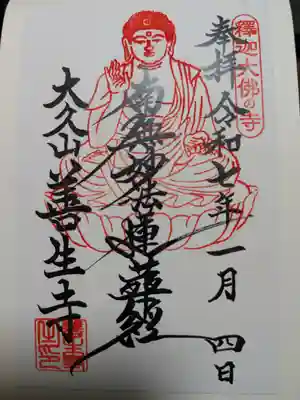 釋迦大佛の寺
奉拝 令和七年一月四日
南無妙法蓮華経
大久山善生寺